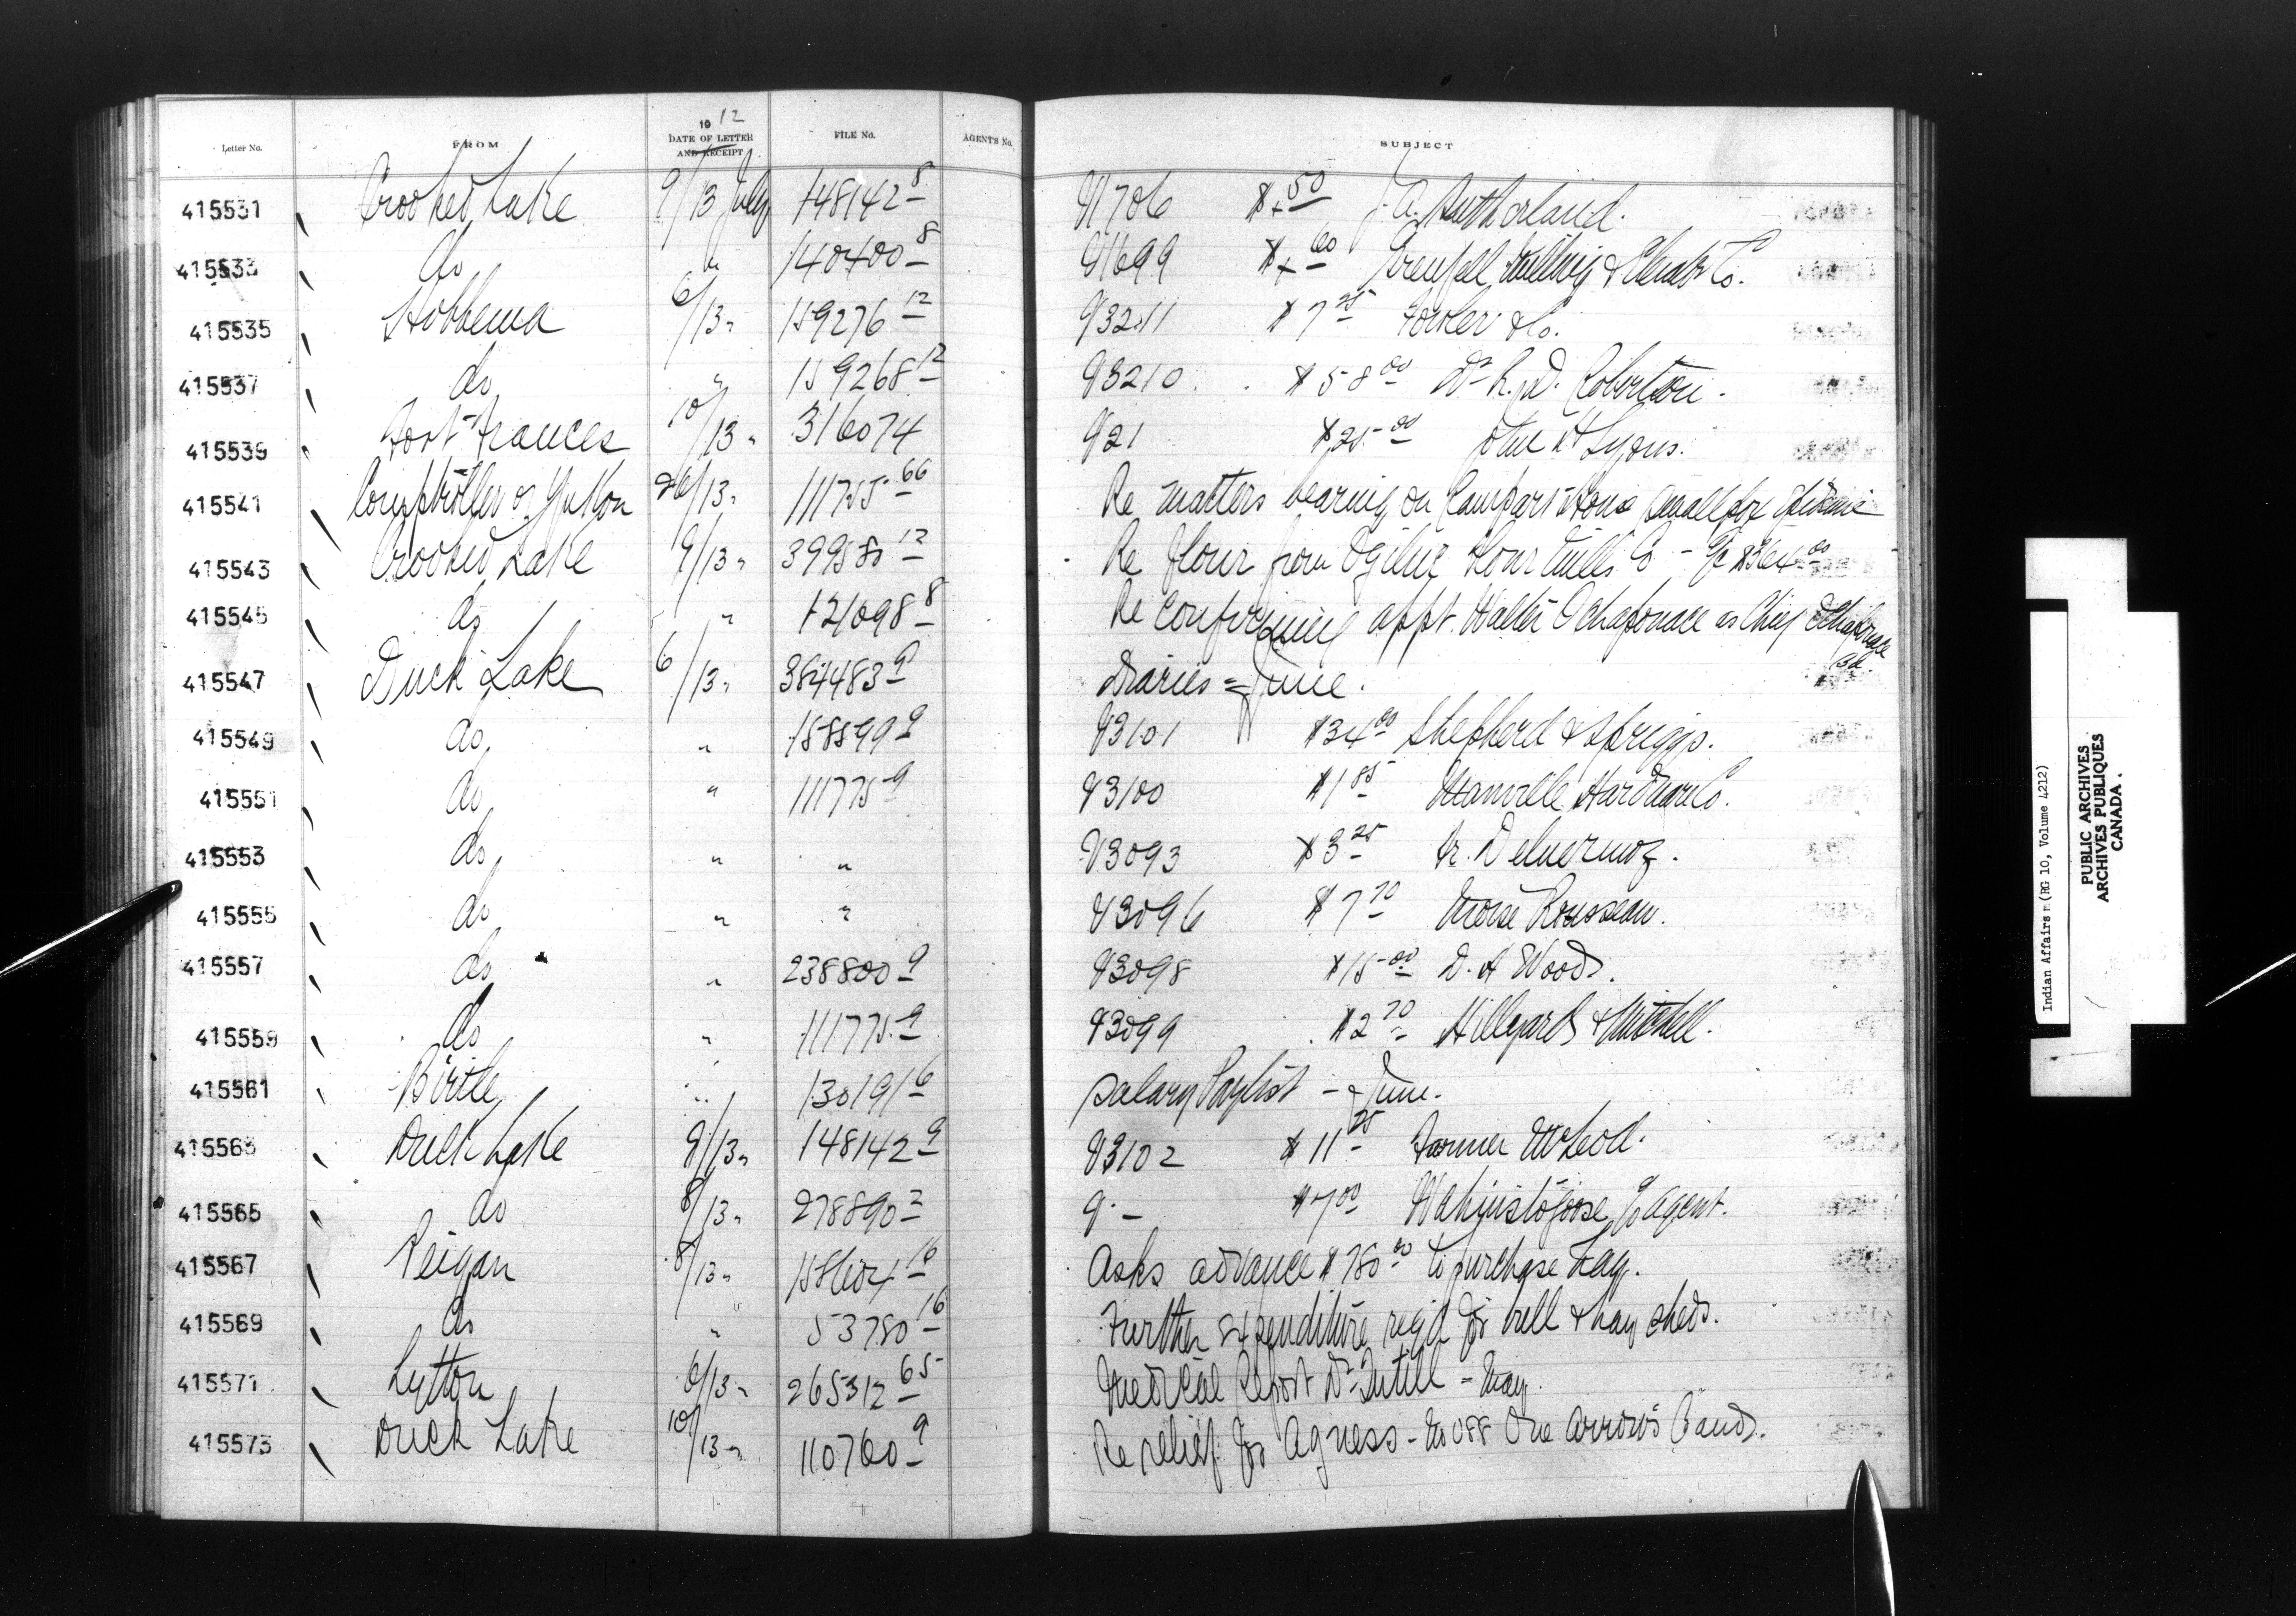 Letter No. FROM 1912 DATE OF LETTER AND RECEIPT FILE No. AGENTS No. SUBJECT
415531 Crooked Lake 9/13 July 148142-8 V1706 $ .50 J. A. Sutherland.
415533 do " 140400-8 V1699 $ .60 Grenfell Milling & Elevator Co.
415535 Hobbema 6/13 " 159276-12 V3211 $7.25 Fowler & Co.
415537 do " 159268-12 V3210 $58.00 Dr R. D. Roberton.
415539 Fort Frances 10/13 " 316074 V21 $25.00 John H Lyons.
415541 Comptroller of Yukon 26/13 " 111755-66 Re matters bearing on Rampart House Smallpox Epidemic
415543 Crooked Lake 9/13 " 399580-12 Re flour from Ogilvie Flour Mills Co - $364.00
415545 do " " 121098-8 Re confirming appt. Walter Ochapowace as Chief Ochapowace Bd.
415547 Duck Lake 6/13 " 384483-9 Diaries - June.
415549 do " 158899-9 V3101 $34.00 Shepherd & Spriggs.
415551 do " 111775-9 V3100 $1.85 Manville Hardware Co.
415553 do " " V3093 $3.25
415555 do " " V3096 $7.70 Moise Rousseau.
415557 do " 238800-9 V3098 $15.00 D. A Wood.
415559 do " 111775-9 V3099 $2.70 Hillyard & Mitchell.
415561 Birtle " 130191-6 Salary Paylist - June.
415563 Duck Lake 9/13 " 148142-9 V3102 $11.25 Farmer McLeod.
415565 do 8/13 " 278890-2 V. - $7.00 c/o Agent.
415567 Peigan 8/13 " 158604-16 Asks advance $780.00 to purchase hay.
415569 do " 53780-16 Further expenditure reqd for well & hay sheds.
415571 Lytton 6/13 " 265312-65 Medical Report Dr Tutill - May.
415573 Duck Lake 10/13 " 110760-9 Re relief for Agness - No 088 One Arrow's Band.
Indian Affairs (RG 10, Volume 4212)
PUBLIC ARCHIVES
ARCHIVES PUBLIQUES
CANADA.